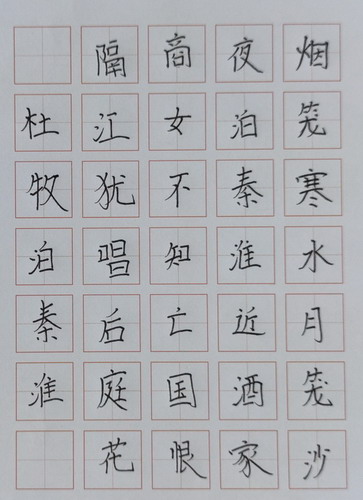 烟笼寒水月笼沙
夜泊秦淮近酒家
商女不知亡国恨
隔江犹唱后庭花
杜牧泊秦淮